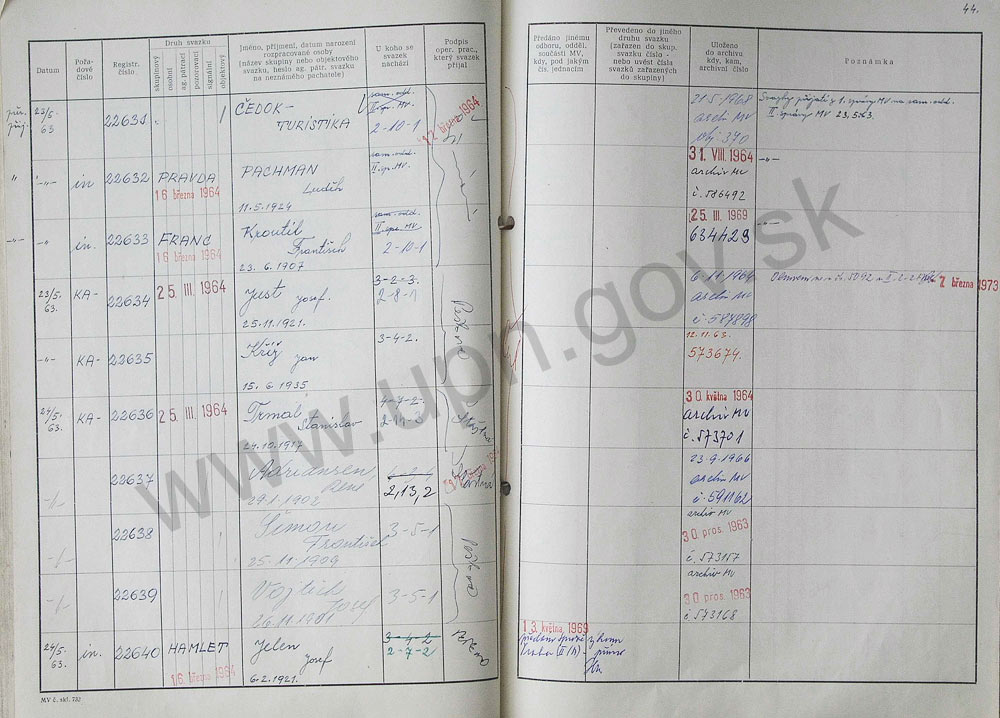 44.
Datum
Pořadové číslo
Registr. číslo
Druh svazku
skupinový
osobní
ag. pátrací
pozorovací
signální
objektový
Jméno, příjmení, datum narození
rozpracované osoby
(název skupiny nebo objektového
svazku, heslo ag. pátr. svazku
na neznámého pachatele)
U koho se
svazek
nachází
Podpis
oper. prac.,
který svazek
přijal
Předáno jinému
odboru, odděl.
součásti MV,
kdy, pod jakým
čís. jednacím
Převedeno do jiného
druhu svazku
(zařazen do skup.
svazku číslo -
nebo uvést čísla
svazků zařazených
do skupiny)
Uloženo
do archivu
kdy, kam,
archivní číslo
Poznámka
23/5. 63 22631 ČEDOK-
TURISTIKA
2-10-1
12 března 1964
21.5.1968
archiv MV
-"- in 22632 PRAVDA PACHMAN
Luděk
16 března 1964
11.5.1924
31. VIII. 1964
archiv MV
č. 586492
-"-
-"- in. 22633 FRANC Kroutil
František
16 března 1964
23. 6. 1907
2-10-1
25. III. 1969
634429
-"-
23/5. 63. KA- 22634 25. III. 1964 Just Josef.
25.11.1921.
3-2-3.
2-8-1
6.11.1964
archiv MV
č. 587898
7 března 1973
-"- KA- 22635 Kříž Jan
15. 6. 1935
3-4-2.
12.11.63.
573674.
24/5. 63. KA- 22636 25. III. 1964 Trmal
Stanislav
24.10.1917
4-7-2.
30. května 1964
archiv MV
č. 573701
22637 Adriansen,
René
29.1.1902
2,13,2
23.9.1966
archiv MV
č. 591162
22638 Šimon
František
25.11.1909
3-5-1
archiv MV
30 pros. 1963
č. 573157
22639 Vojtěch
Josef
26.11.1901
3-5-1
archiv MV
30 pros. 1963
č. 573168
24/5. 63. in. 22640 HAMLET Jelen
Josef
16 března 1964
6.2.1921.
3-4-2
2-7-2
13. května 1969
MV č. skl. 732
www.upn.gov.sk